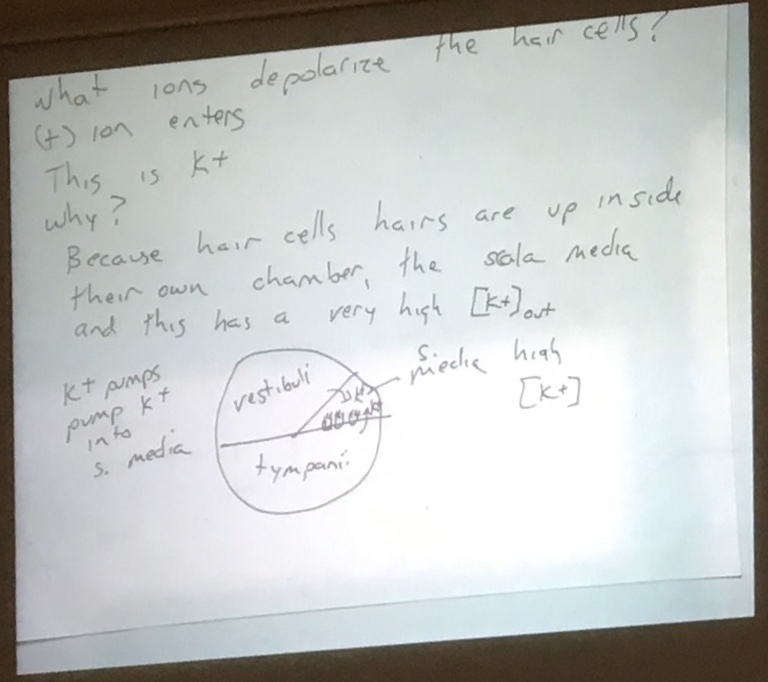 What ions depolarize the hair cells?
(+) ion enters
This is K+
why?
Because hair cells hairs are up inside
their own chamber, the scala media
and this has a very high [K+]out
K+ pumps
pump K+
into
s. media
vestibuli
tympani
s. media high
[K+]